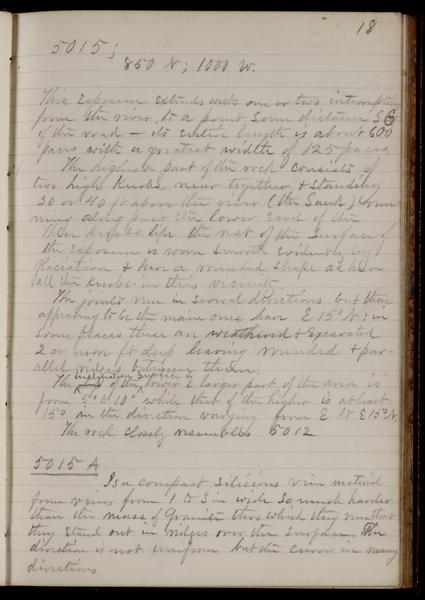 18
5015;
850 N; 1000 W.
This exposure extends with one or two interruptions
from the river to a point some distance S E
of the road — its entire length is about 600
paces with a greatest width of 125 paces
The highest part of the rock consists of
two high knobs near together & standing
30 or 40 ft above the river (the Sauk) run
ning along past the lower end of the
These knobs like the rest of the surface of
the exposure is worn smooth evidently by
glaciation & have a rounded shape as have
all the knobs in this vicinity.
The joints run in several directions but those
appearing to be the main ones bear E 15° N; in
some places these are weathered & excavated
2 or more ft deep leaving rounded & par-
allel ridges between them.
inclination
The of the lower & larger part of the area is
from 5° to 10° while that of the higher is at least
15° in the direction varying from E to E 15° N.
The rock closely resembles 5012
5015 A
Is a compact silicious vein material
from veins from 1 to 3 in wide so much harder
than the mass of Granite thro which they run that
they stand out in ridges over the surface. The
direction is not uniform but the curve in many
directions